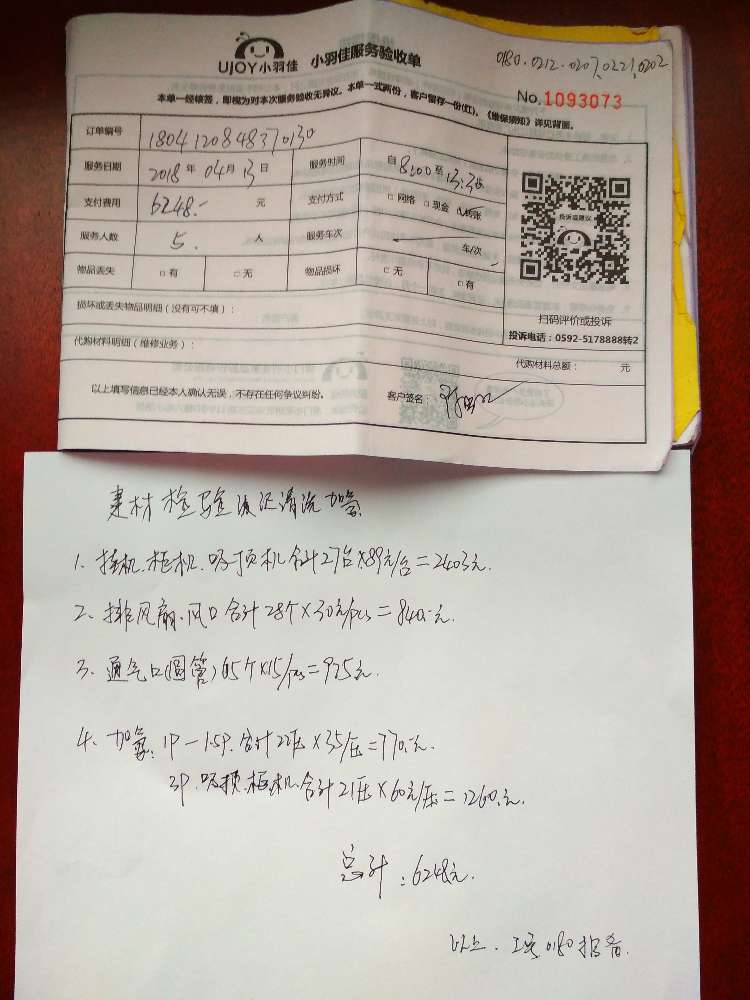 UJOY小羽佳 小羽佳服务验收单
0180.0212.0207.0221.0202
No.1093073
本单一经核签，即视为对本次服务验收无异议。本单一式两份，客户留存一份(红)。《维保须知》详见背面。
订单编号 180412084837 0130
服务日期 2018年04月13日 服务时间 自8:00至13:30
支付费用 6248.- 元 支付方式 □网络 □现金 ☑转账
服务人数 5. 人 服务车次 车/次
物品丢失 □有 □无 物品损坏 □无 □有
投诉或建议
扫码评价或投诉
投诉电话：0592-5178888转2
损坏或丢失物品明细（没有可不填）：
代购材料明细（维修业务）： 代购材料总额： 元
以上填写信息已经本人确认无误，不存在任何争议纠纷。 客户签名：
建材检验 清洗加氟
1、挂机.柜机.吸顶机合计27台×89元/台=2403元.
2、排风扇.风口合计28个×30元/pcs=840.-元.
3、通气口(圆管)65个×15/pcs=975元.
4、加氟：1P-1.5P.合计22压×35/压=770.-元.
3P.吸顶.柜机合计21压×60元/压=1260.元.
总计：6248元.
以上.工号0180报音.